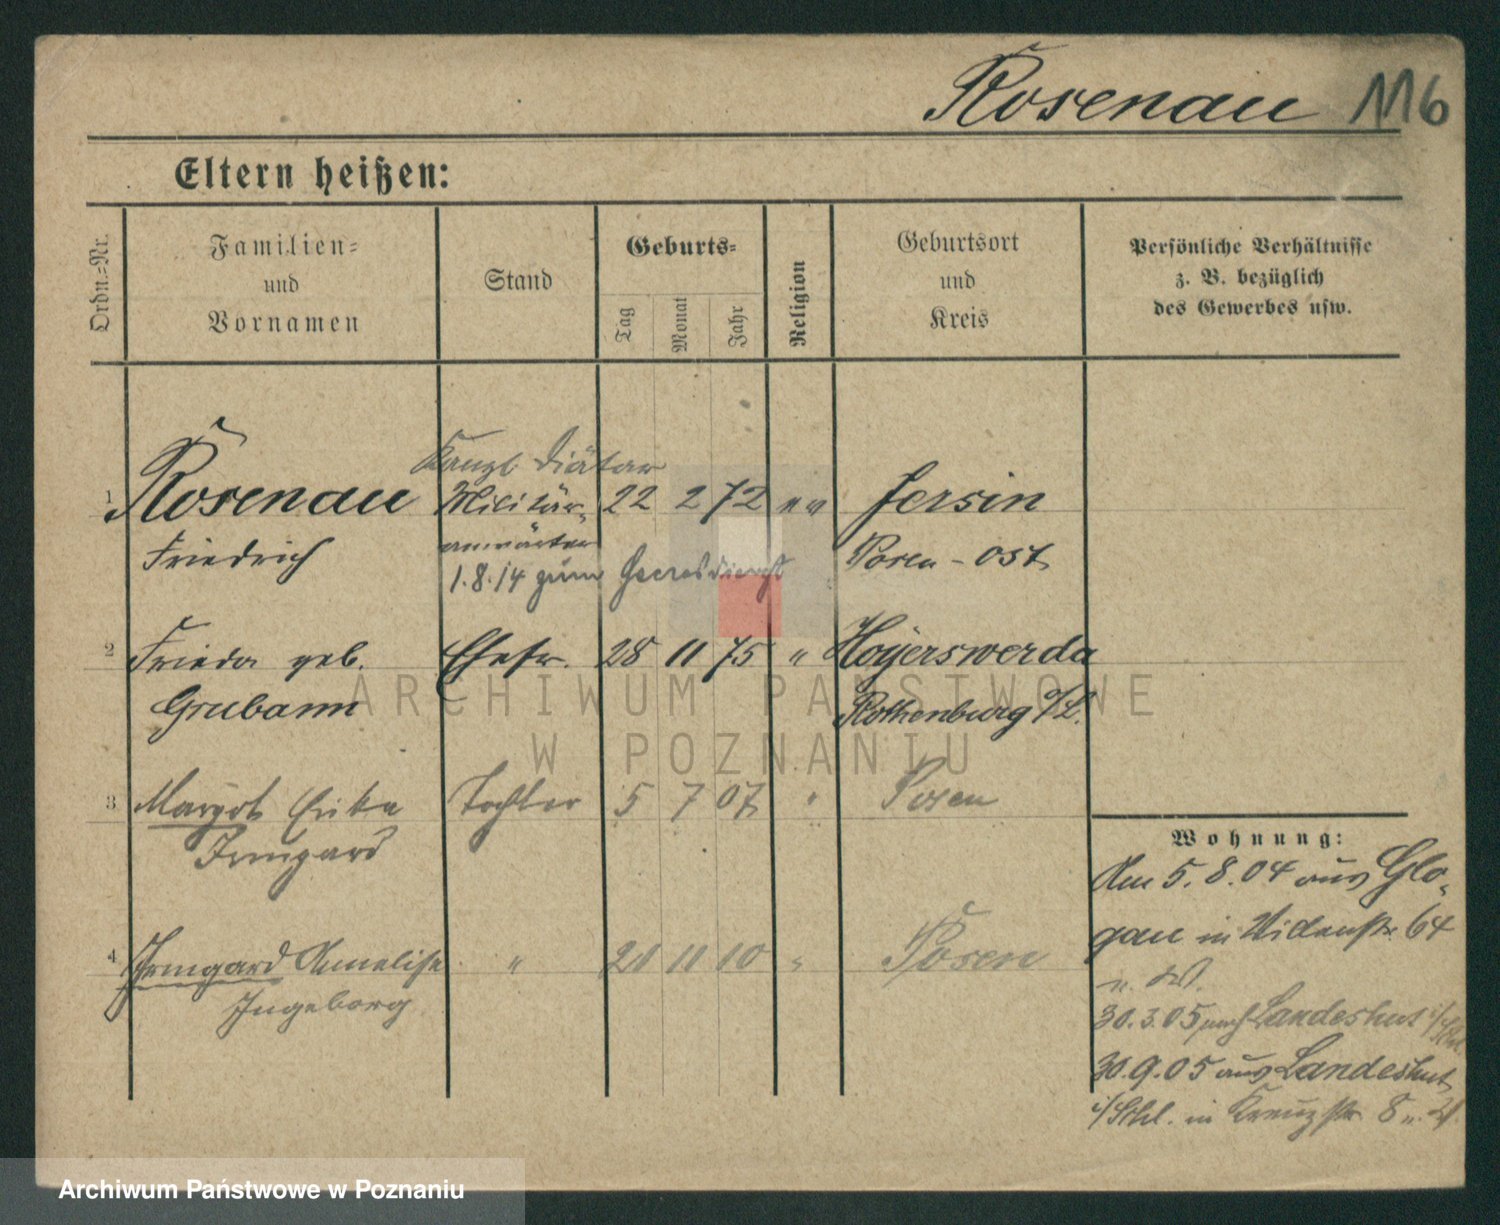 Rosenau 116
Eltern heißen:
Ordn.=Nr.
Familien=
und
Vornamen
Stand
Geburts=
Tag
Monat
Jahr
Religion
Geburtsort
und
Kreis
Persönliche Verhältnisse
z. B. bezüglich
des Gewerbes usw.
Kanzl. Diätar
1 Rosenau Militär- 22 2 72 ev Jersin
Friedrich anwärter Posen-Ost
1.8.14 zum Heeresdienst
2 Frieda geb. Ehefr. 28 11 75 " Hoyerswerda
Grubann Rothenburg O/L.
3 Margot Erika Tochter 5 7 07 " Posen
Irmgard
4 Irmgard Annelise " 21 11 10 " Posen
Ingeborg
Wohnung:
Am 5.8.04 aus Glo-
gau in 64
30.3.05 nach Landeshut i/Schl.
30.9.05 aus Landeshut
i/Schl. in Kreuzstr. 8
ARCHIWUM PAŃSTWOWE
W POZNANIU
Archiwum Państwowe w Poznaniu